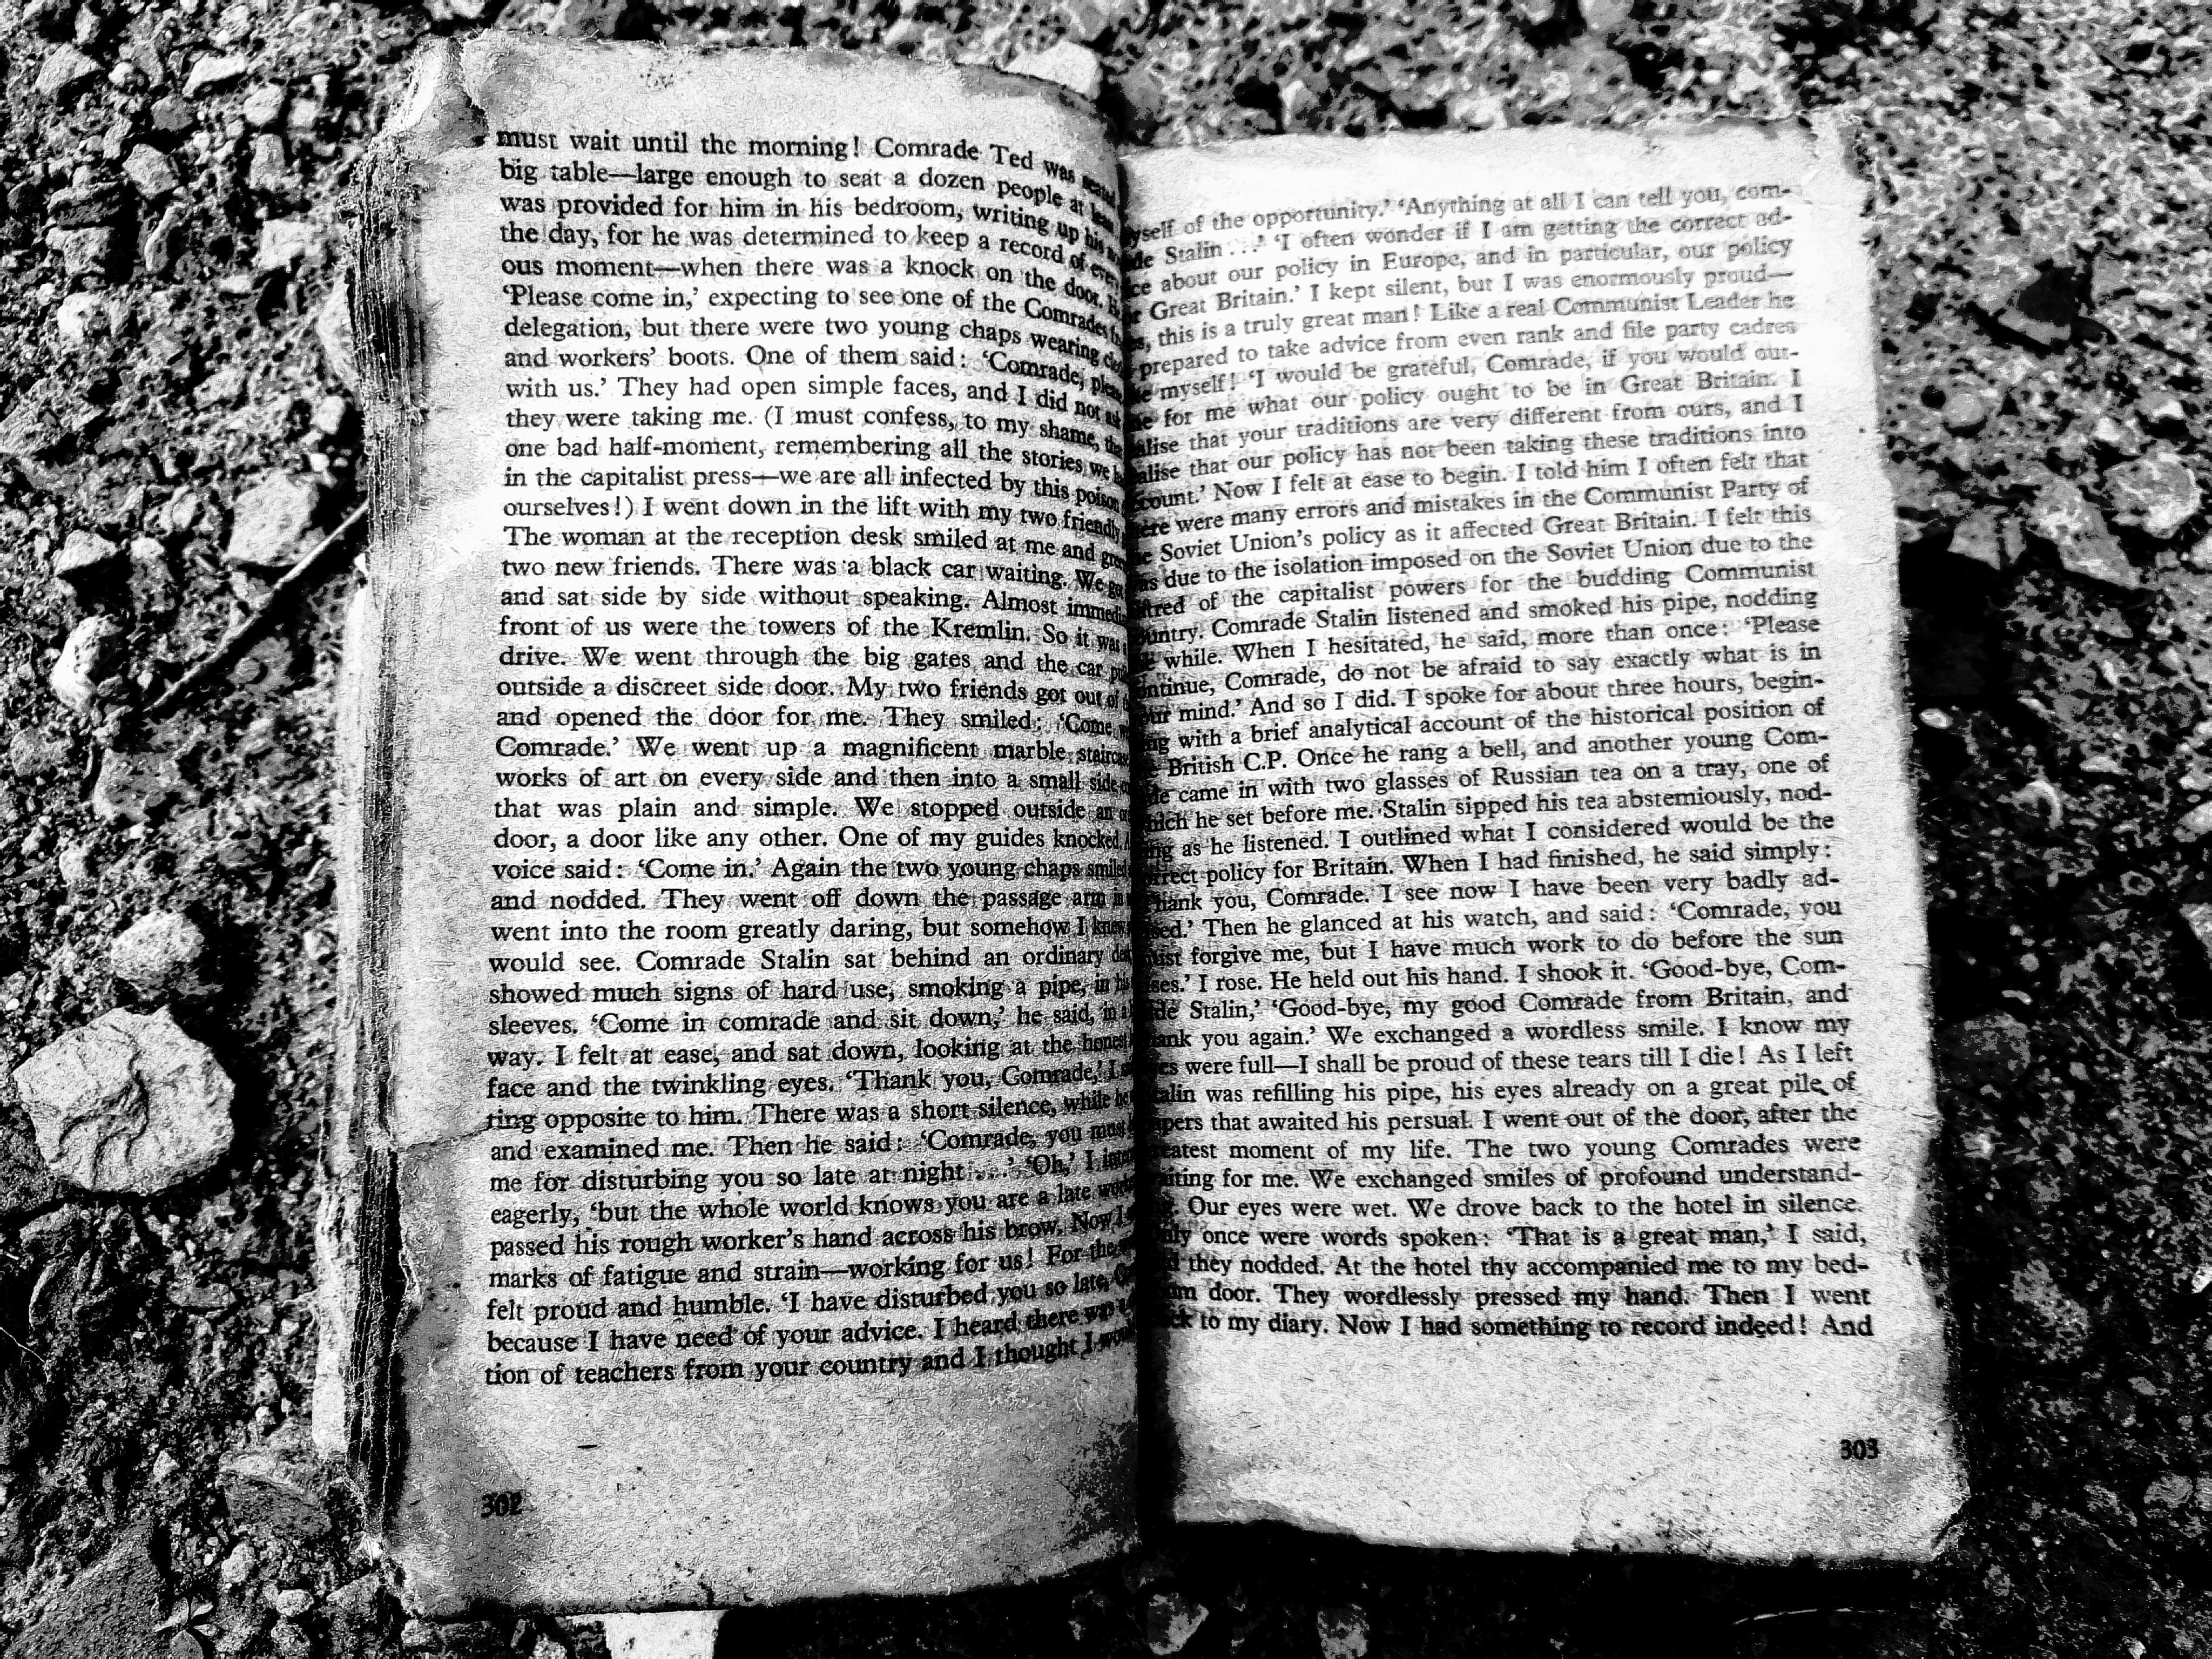 must wait until the morning! Comrade Ted was seated
big table—large enough to seat a dozen people at least
was provided for him in his bedroom, writing up his
the day, for he was determined to keep a record of
ous moment—when there was a knock on the door.
'Please come in,' expecting to see one of the Comrades
delegation, but there were two young chaps wearing
and workers' boots. One of them said: 'Comrade,
with us.' They had open simple faces, and I did not
they were taking me. (I must confess, to my shame,
one bad half-moment, remembering all the stories we
in the capitalist press—we are all infected by this poison
ourselves!) I went down in the lift with my two friendly
The woman at the reception desk smiled at me and
two new friends. There was a black car waiting. We
and sat side by side without speaking. Almost
front of us were the towers of the Kremlin. So it was
drive. We went through the big gates and the car
outside a discreet side door. My two friends got out of
and opened the door for me. They smiled: 'Come
Comrade.' We went up a magnificent marble
works of art on every side and then into a small side
that was plain and simple. We stopped outside an
door, a door like any other. One of my guides knocked.
voice said: 'Come in.' Again the two young chaps smiled
and nodded. They went off down the passage arm
went into the room greatly daring, but somehow I knew
would see. Comrade Stalin sat behind an ordinary
showed much signs of hard use, smoking a pipe, in his
sleeves. 'Come in comrade and sit down,' he said, in a
way. I felt at ease, and sat down, looking at the honest
face and the twinkling eyes. 'Thank you, Comrade,' I
ring opposite to him. There was a short silence, while he
and examined me. Then he said: 'Comrade, you must
me for disturbing you so late at night . . .' 'Oh,' I
eagerly, 'but the whole world knows you are a late
passed his rough worker's hand across his brow. Now I
marks of fatigue and strain—working for us! For the
felt proud and humble. 'I have disturbed you so late,
because I have need of your advice. I heard there was
tion of teachers from your country and I thought I
302
yself of the opportunity.' 'Anything at all I can tell you, com-
de Stalin . . .' 'I often wonder if I am getting the correct ad-
ce about our policy in Europe, and in particular, our policy
Great Britain.' I kept silent, but I was enormously proud—
this is a truly great man! Like a real Communist Leader he
prepared to take advice from even rank and file party cadres
myself! 'I would be grateful, Comrade, if you would out-
for me what our policy ought to be in Great Britain. I
alise that your traditions are very different from ours, and I
alise that our policy has not been taking these traditions into
count.' Now I felt at ease to begin. I told him I often felt that
ere were many errors and mistakes in the Communist Party of
Soviet Union's policy as it affected Great Britain. I felt this
as due to the isolation imposed on the Soviet Union due to the
tred of the capitalist powers for the budding Communist
untry. Comrade Stalin listened and smoked his pipe, nodding
while. When I hesitated, he said, more than once: 'Please
ntinue, Comrade, do not be afraid to say exactly what is in
ur mind.' And so I did. I spoke for about three hours, begin-
ng with a brief analytical account of the historical position of
British C.P. Once he rang a bell, and another young Com-
de came in with two glasses of Russian tea on a tray, one of
ich he set before me. Stalin sipped his tea abstemiously, nod-
ng as he listened. I outlined what I considered would be the
rrect policy for Britain. When I had finished, he said simply:
hank you, Comrade. I see now I have been very badly ad-
sed.' Then he glanced at his watch, and said: 'Comrade, you
ust forgive me, but I have much work to do before the sun
ses.' I rose. He held out his hand. I shook it. 'Good-bye, Com-
de Stalin,' 'Good-bye, my good Comrade from Britain, and
ank you again.' We exchanged a wordless smile. I know my
es were full—I shall be proud of these tears till I die! As I left
alin was refilling his pipe, his eyes already on a great pile of
pers that awaited his persual. I went out of the door, after the
eatest moment of my life. The two young Comrades were
iting for me. We exchanged smiles of profound understand-
Our eyes were wet. We drove back to the hotel in silence.
ly once were words spoken: 'That is a great man,' I said,
they nodded. At the hotel thy accompanied me to my bed-
om door. They wordlessly pressed my hand. Then I went
ck to my diary. Now I had something to record indeed! And
303